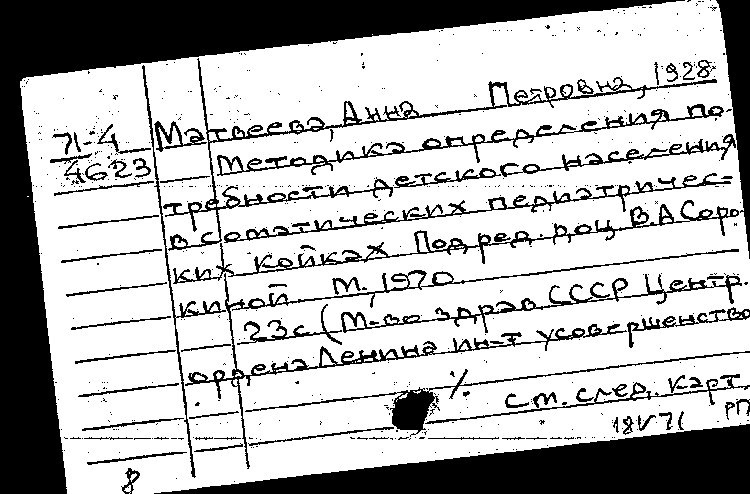 Матвеева, Анна Петровна, 1928
71-4
4623
Методика определения по-
требности детского населения
в соматических педиатричес-
ких койках Под ред. доц. В.А Соро-
киной М., 1970.
23с (М-во здрав. СССР Центр.
ордена Ленина ин-т усовершенство
%. см. след. карт.
18V71 РП
8